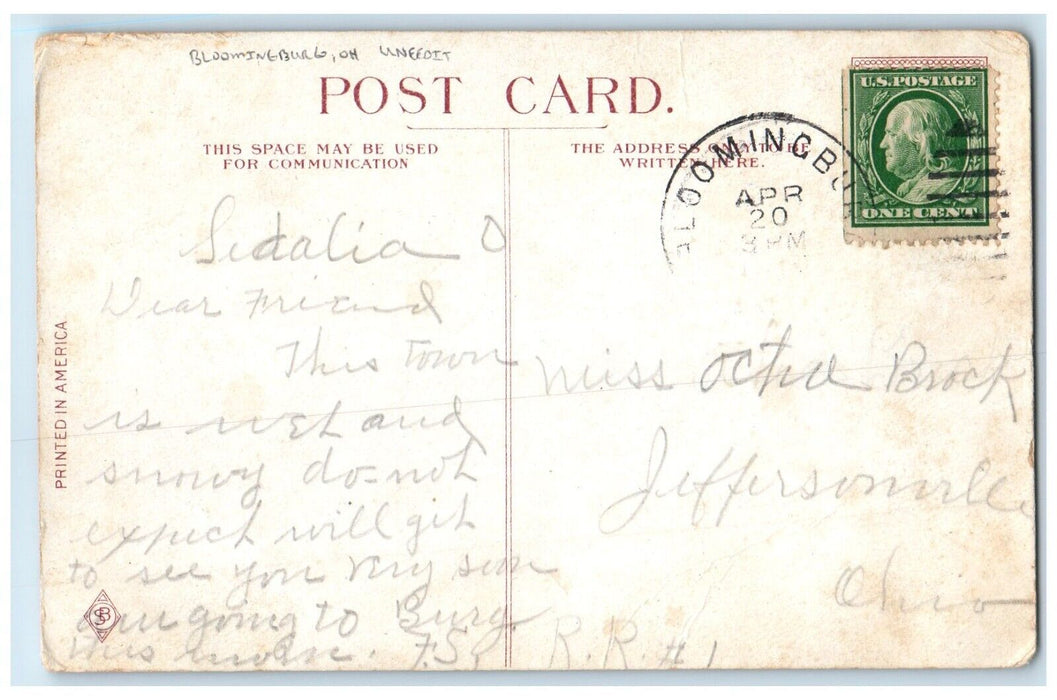 BLOOMINGBURG, OH UNEEDIT
POST CARD.
THIS SPACE MAY BE USED
FOR COMMUNICATION
THE ADDRESS ONLY TO BE
WRITTEN HERE.
U.S. POSTAGE
ONE CENT
BLOOMINGBU
APR
20
3 PM
PRINTED IN AMERICA
Sedalia O
Dear Friend
This Town
is wet and
snowy do-not
expect will get
to see you very soon
am going to Burg
this morn. F.S.
Miss Octua Brock
Jeffersonville
Ohio
R.R. #1
SB